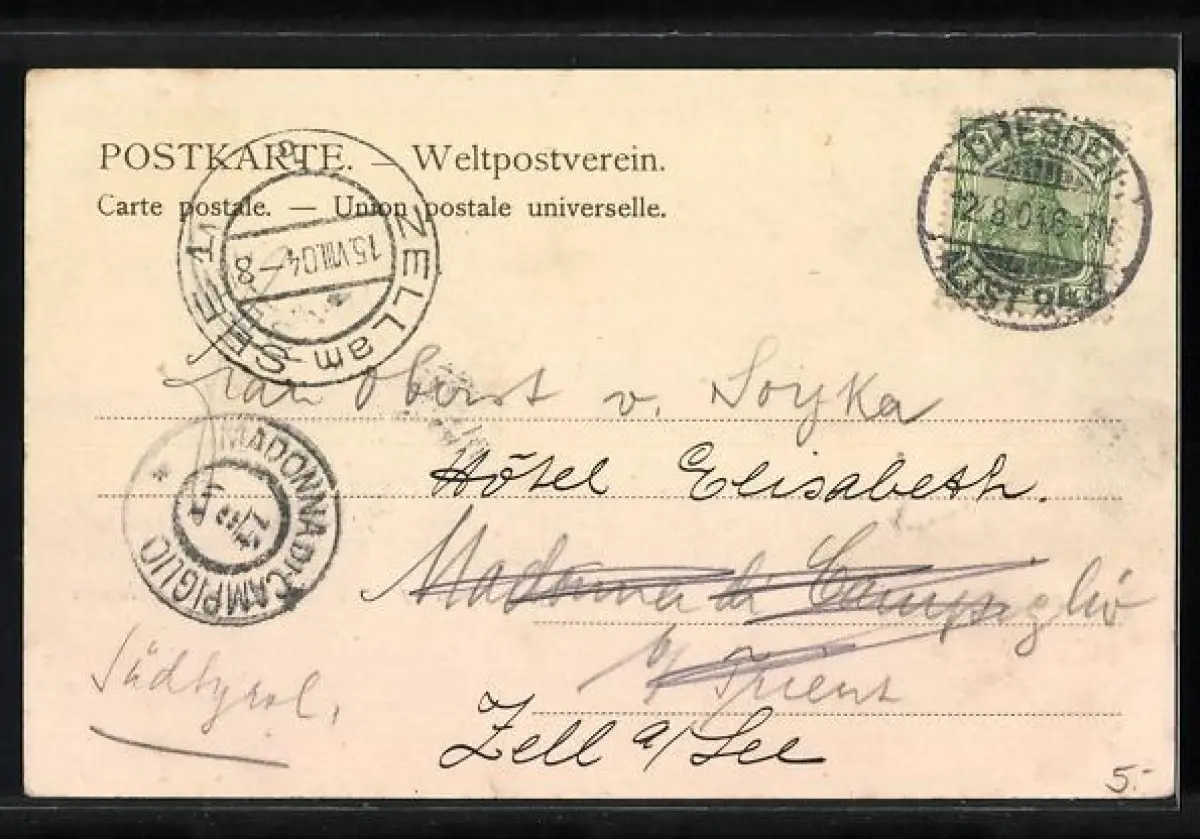 POSTKARTE. — Weltpostverein.
Carte postale. — Union postale universelle.
DRESDEN
ALTST.
ZELL am SEE
15.VIII.04-8
MADONNA DI CAMPIGLIO
Frau Oberst v. Soyka
Hôtel Elisabeth.
Madonna di Campiglio
b/ Trient
Südtyrol.
Zell a/See
5.-